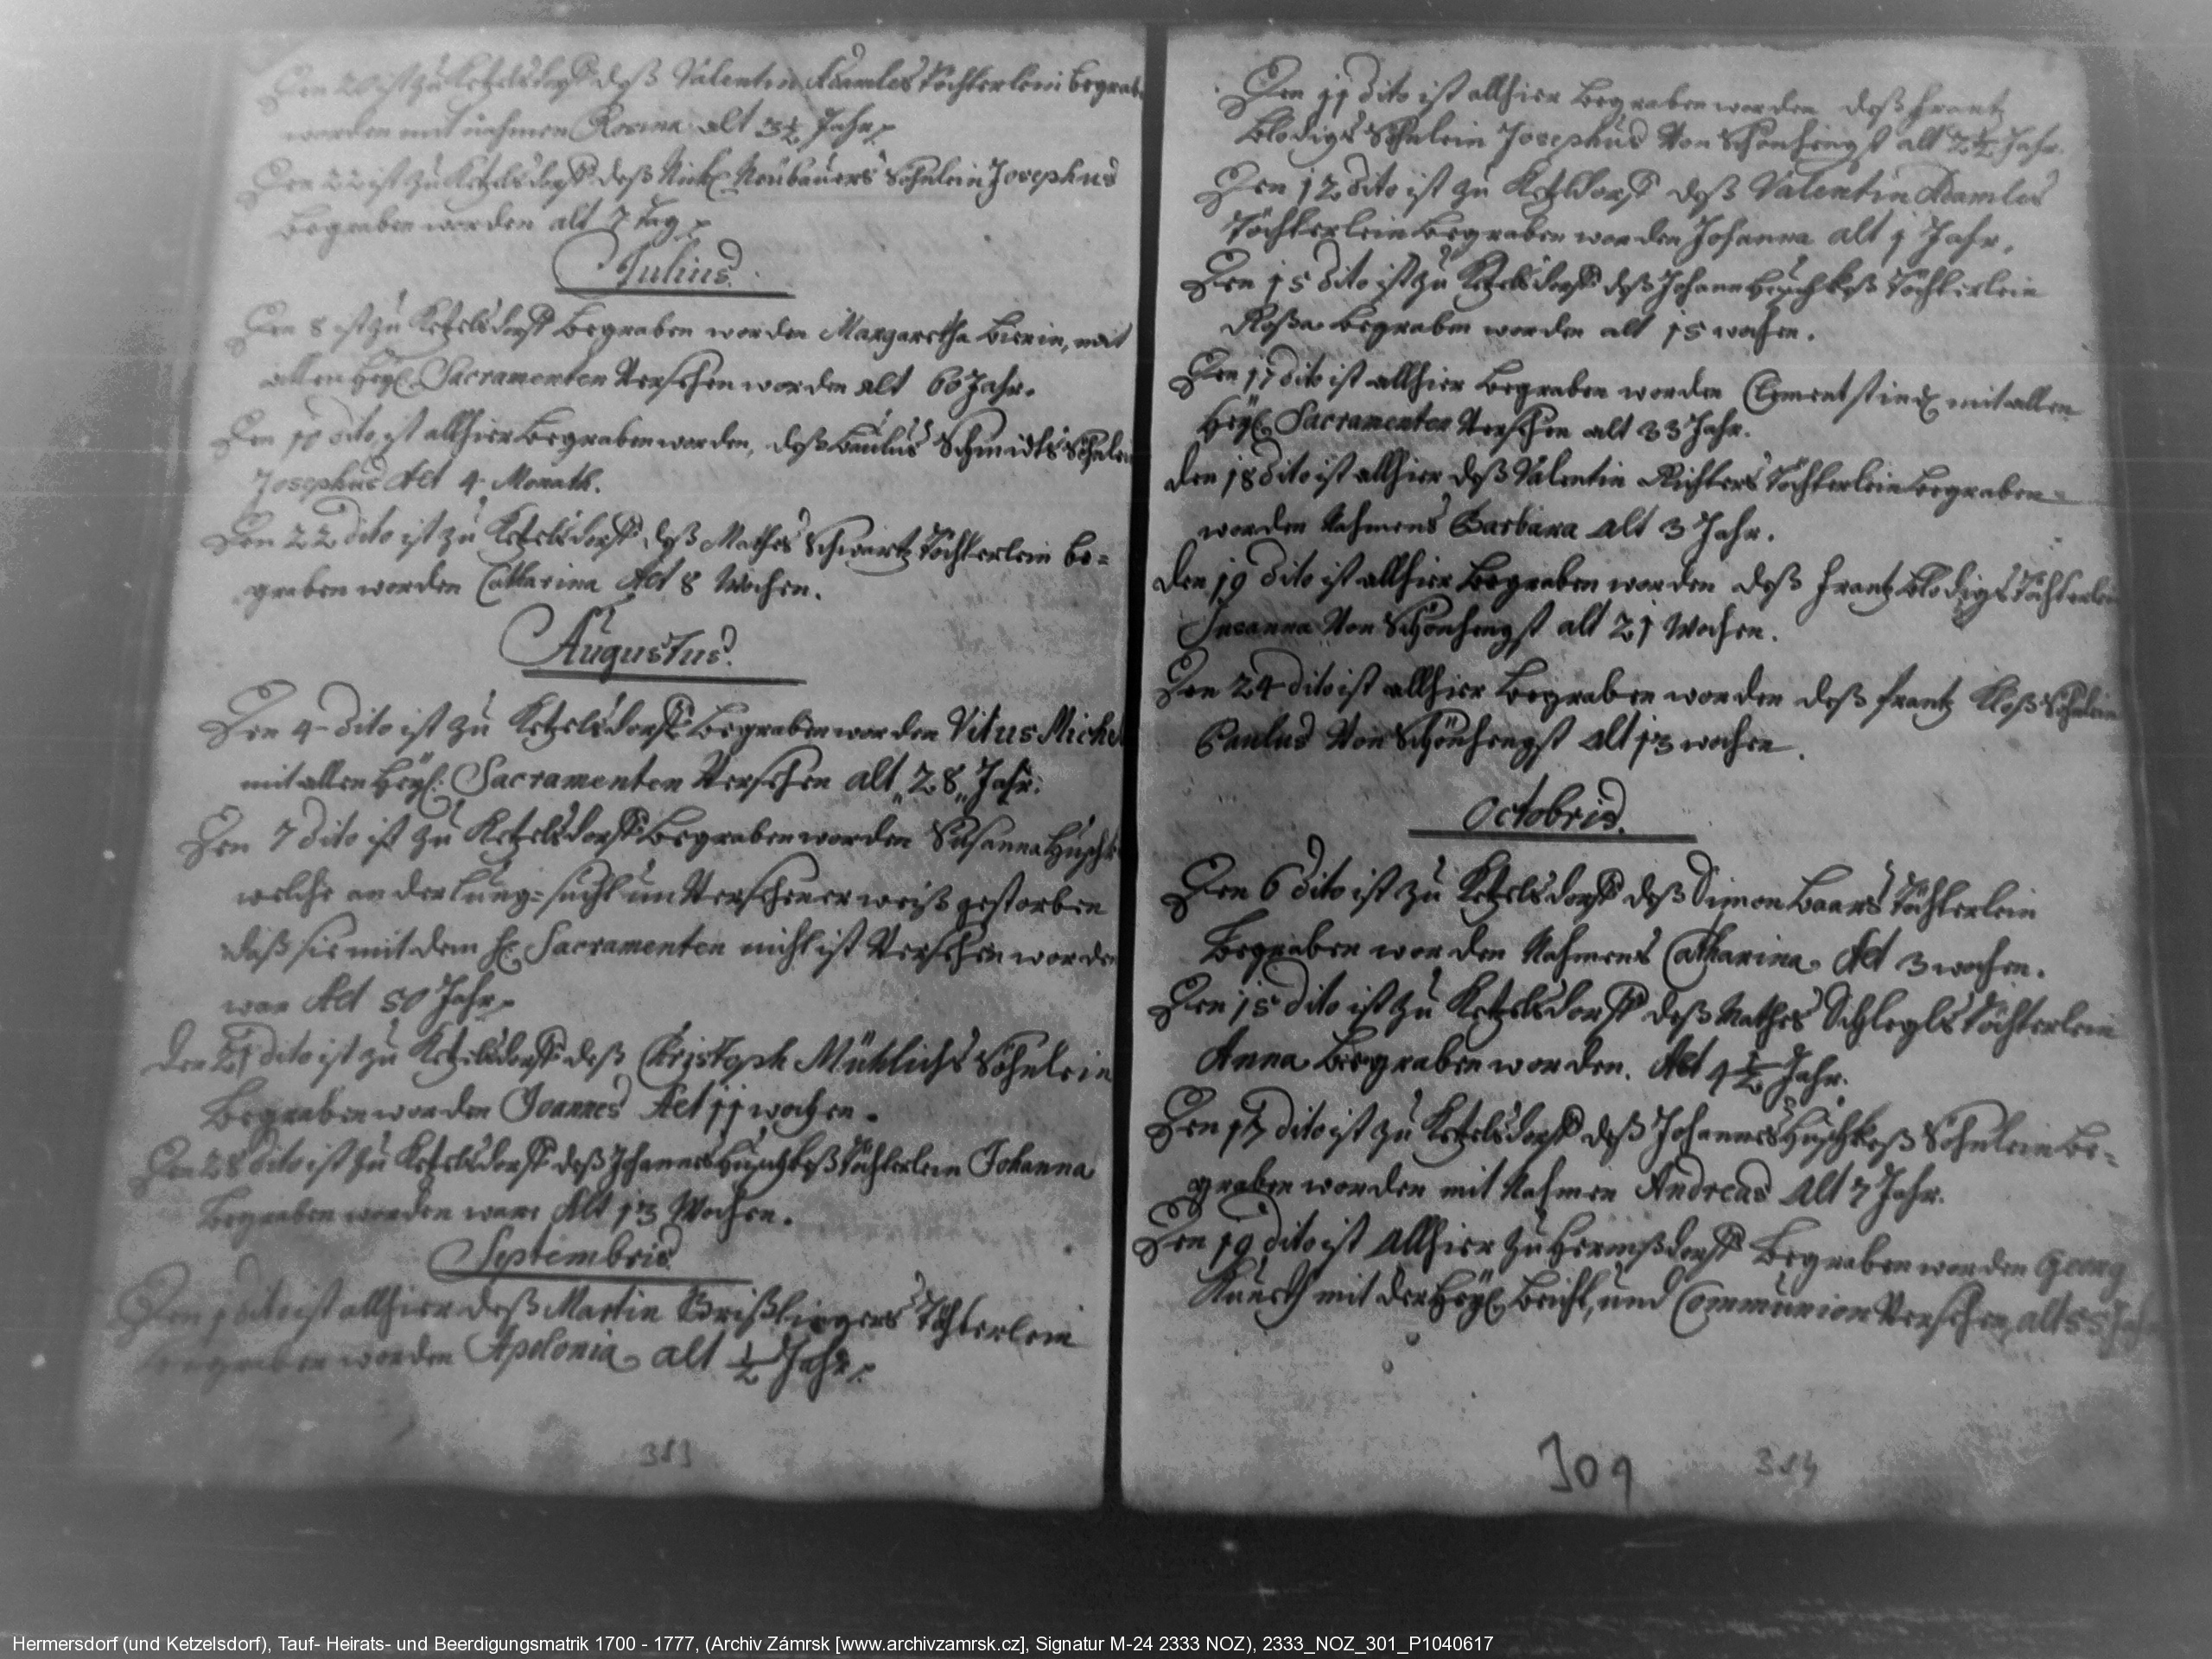 Den 20 ist zu Ketzelsdorff deß Valentin Adamles Töchterlein begrab
worden mit nahmen Rosina alt 3½ Jahr
Den 22 ist zu Ketzelsdorff deß Nickl Neubauers Söhnlein Josephus
Begraben worden alt 7 Tag
Julius.
Den 8 ist zu Ketzelsdorff Begraben worden Margaretha Bierin, mit
allen Heyl. Sacramenten Versehen worden alt 60 Jahr.
Den dito ist allhier Begraben worden, deß Paulus Schmidts Söhnlein
Josephus Act 4 Monath.
Den 22 dito ist zu Ketzelsdorff deß Mathes Schwartz Töchterlein be=
graben worden Catharina Act 8 Wochen.
Augustus.
Den 4 dito ist zu Ketzelsdorff Begraben worden Vitus Michel
mit allen Heyl: Sacramenten Versehen alt „28„ Jahr:
Den 7 dito ist zu Ketzelsdorff Begraben worden Susanna Huschk
welche an der Lung=sucht unversehener weiß gestorben
daß sie mit dem H. Sacramenten nicht ist Versehen worden
war Act 50 Jahr
Den 21 dito ist zu Ketzelsdorff deß Christoph Mühlichs Söhnlein
Begraben worden Joannes Act 11 wochen.
Den 28 dito ist zu Ketzelsdorff deß Johannes Huschkeß Töchterlein Johanna
Begraben worden ware Alt 13 Wochen.
Septembris
Den 1 dito ist allhier deß Martin Töchterlein
begraben worden Apolonia alt ½ Jahr
383
Den 11 dito ist allhier Begraben worden deß Frantz
Blodigs Söhnlein Josephus Von Schönhengst alt 2½ Jahr.
Den 12 dito ist zu Ketzldorff deß Valentin Adamles
Töchterlein Begraben worden Johanna alt 1 Jahr.
Den 15 dito ist zu Ketzelsdorff deß Johann Huschkeß Töchterlein
Roßa Begraben worden alt 15 wochen.
Den 17 dito ist allhier Begraben worden Clement mit allen
Heyl. Sacramenten Versehen alt 33 Jahr.
Den 18 dito ist allhier deß Valentin Richters Töchterlein begraben
worden Nahmens Barbara alt 3 Jahr.
Den 19 dito ist allhier Begraben worden deß Frantz Blodigs Töchterlein
Susanna Von Schönhengst alt 21 Wochen.
Den 24 dito ist allhier Begraben worden deß frantz Kloß Söhnlein
Paulus Von Schönhengst alt 13 wochen.
Octobris.
Den 6 dito ist zu Ketzelsdorff deß Simon Baars Töchterlein
Begraben worden Nahmens Catharina Act 3 wochen.
Den 15 dito ist zu Ketzelsdorff deß Mathes Schlegls Töchterlein
Anna Begraben worden. Act 1½ Jahr.
Den 17 dito ist zu Ketzelsdorff deß Johannes Huschkeß Söhnlein Be=
graben worden mit Nahmen Andreas Alt 7 Jahr.
Den 19 dito ist allhier zu Hermßdorff Begraben worden Georg
mit der Heyl. Beicht, und Communion Versehen, alt 55 Jahr
309
384
Hermersdorf (und Ketzelsdorf), Tauf- Heirats- und Beerdigungsmatrik 1700 - 1777, (Archiv Zámrsk [www.archivzamrsk.cz], Signatur M-24 2333 NOZ), 2333_NOZ_301_P1040617